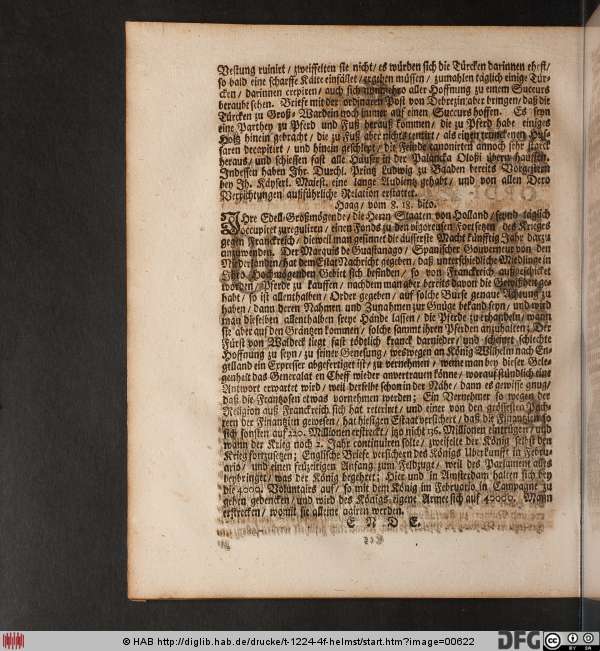 Vestung ruinirt / zweiffelten sie nicht / es würden sich die Türcken darinnen ehest /
so bald eine scharffe Kälte einfället / ergeben müssen / zumahlen täglich einige Tür-
cken / darinnen crepiren / auch sich aller Hoffnung zu einem Succurs
beraubt sehen. Briefe mit der ordinaren Post von Debrezin aber bringen / daß die
Türcken zu Groß-Wardein noch immer auf einen Succurs hoffen. Es seyn
eine Parthey zu Pferd und Fuß herauß kommen / die zu Pferd habe einiges
Holtz hinein gebracht / die zu Fuß aber nichts tentirt / als einen trunckenen Hus-
saren decapitirt / und hinein geschlept / die Feinde canonirten annoch sehr starck
heraus / und schiessen fast alle Häuser in der Palancka Olossi übern hauffen.
Indessen haben Ihr. Durchl. Printz Ludwig zu Baaden bereits Vorgestern
bey Ih. Käyserl. Maiest. eine lange Audientz gehabt / und von allen Dero
Verrichtungen außführliche Relation erstattet.
Haag / vom 8. 18. dito.
IHre Edell-Großmögende / die Herrn Staaten von Holland / seynd täglich
occupiret zureguliren / einen Fonds zu den vigoreusen Fortsetzen des Krieges
gegen Franckreich / dieweil man gesinnet die äusserste Macht künfftig Jahr darzu
anzuwenden. Der Marquis de Guastanago / Spanischer Gouverneur von den
Niderlanden / hat dem Estat Nachricht gegeben / daß unterschiedliche Miedlinge in
Ihro Hochmögenden Gebiet sich befinden / so von Franckreich außgeschicket
worden / Pferde zu kauffen / nachdem man aber bereits davon die Gewißheit ge-
habt / so ist allenthalben / Order gegeben / auf solche Bursc genaue Achtung zu
haben / dann deren Nahmen und Zunahmen zur Gnüge bekand seyn / und wird
man dieselben allenthalben freye Hände lassen / die Pferde zu erhandeln / wann
sie aber auf den Gräntzen kommen / solche sammt ihren Pferden anzuhalten; Der
Fürst von Waldeck liegt fast tödtlich kranck darnieder / und scheinet schlechte
Hoffnung zu seyn / zu seiner Genesung / weswegen an König Wilhelm nach En-
gelland ein Expresser abgefertiget ist / zu vernehmen / weme man bey dieser Gele-
genheit das Generalat en Cheff wieder anvertrauen könne / worauf stündlich eine
Antwort erwartet wird / weil derselbe schon in der Nähe / dann es gewisse gnug /
daß die Frantzosen etwas vornehmen werden; Ein Vernehmer so wegen der
Religion auß Franckreich sich hat reteriret / und einer von den grössesten Päch-
tern der Finantzim gewesen / hat hiesigen Estaat versichert / daß die Finantzien so
sich sonsten auf 220. Millionen erstreckt / itzo nicht 136. Millionen eintrügen / und
wann der Krieg noch 2. Jahr continuiren solte / zweifelte der König selbst den
Krieg fortzusetzen; Englische Briefe versichern des Königs Uberkunfft in Febru-
ario / und einen frühzeitigen Anfang zum Feldzuge / weil des Parlament alles
beybringet / was der König begehret; Hier und in Amsterdam halten sich bey
die 4000. Voluntairs auf / so mit dem König im Februario in Campagne zu
gehen gedencken / und wird des Königs eigene Armee sich auf 40000. Mann
erstrecken / womit sie alleine agiren werden.
E N D E.
© HAB http://diglib.hab.de/drucke/t-1224-4f-helmst/start.htm?image=00622
DFG
CC BY SA